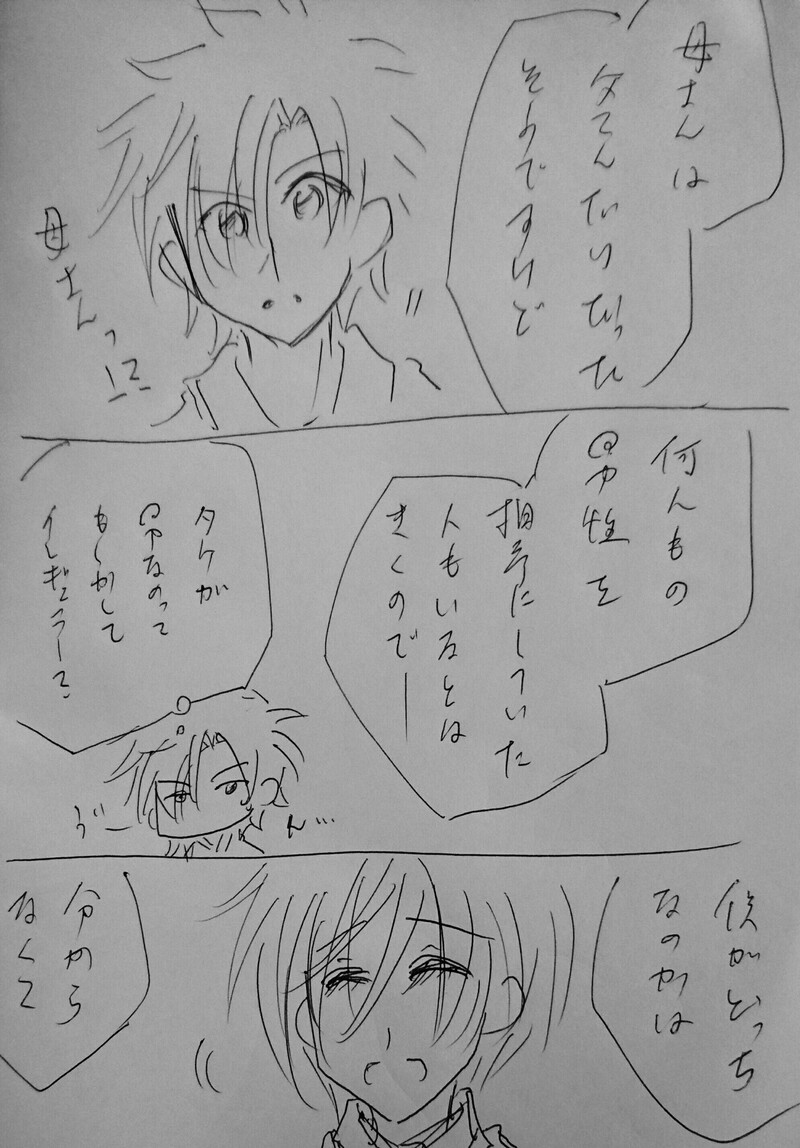 母さんは
だった
そうですけど
母さんっ!?
何人もの
男性を
相手にしていた
人もいるとは
きくのでー
タケが
男なのって
もしかして
イレギュラー?
う゛ー
ん…
僕がどっち
なのかは
分から
なくて